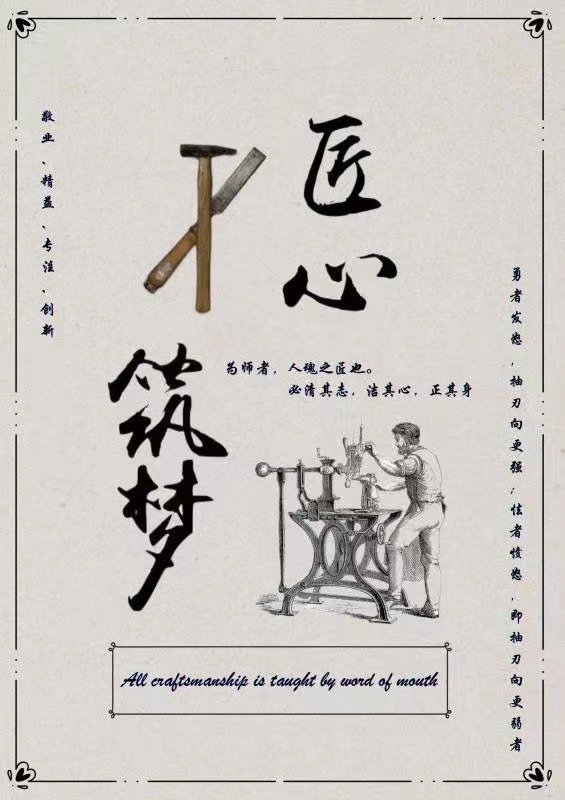 匠心
筑梦
敬业、精益、专注、创新
为师者，人魂之匠也。
必清其志，洁其心，正其身
勇者发怒，抽刃向更强；怯者愤怒，即抽刃向更弱者
All craftsmanship is taught by word of mouth